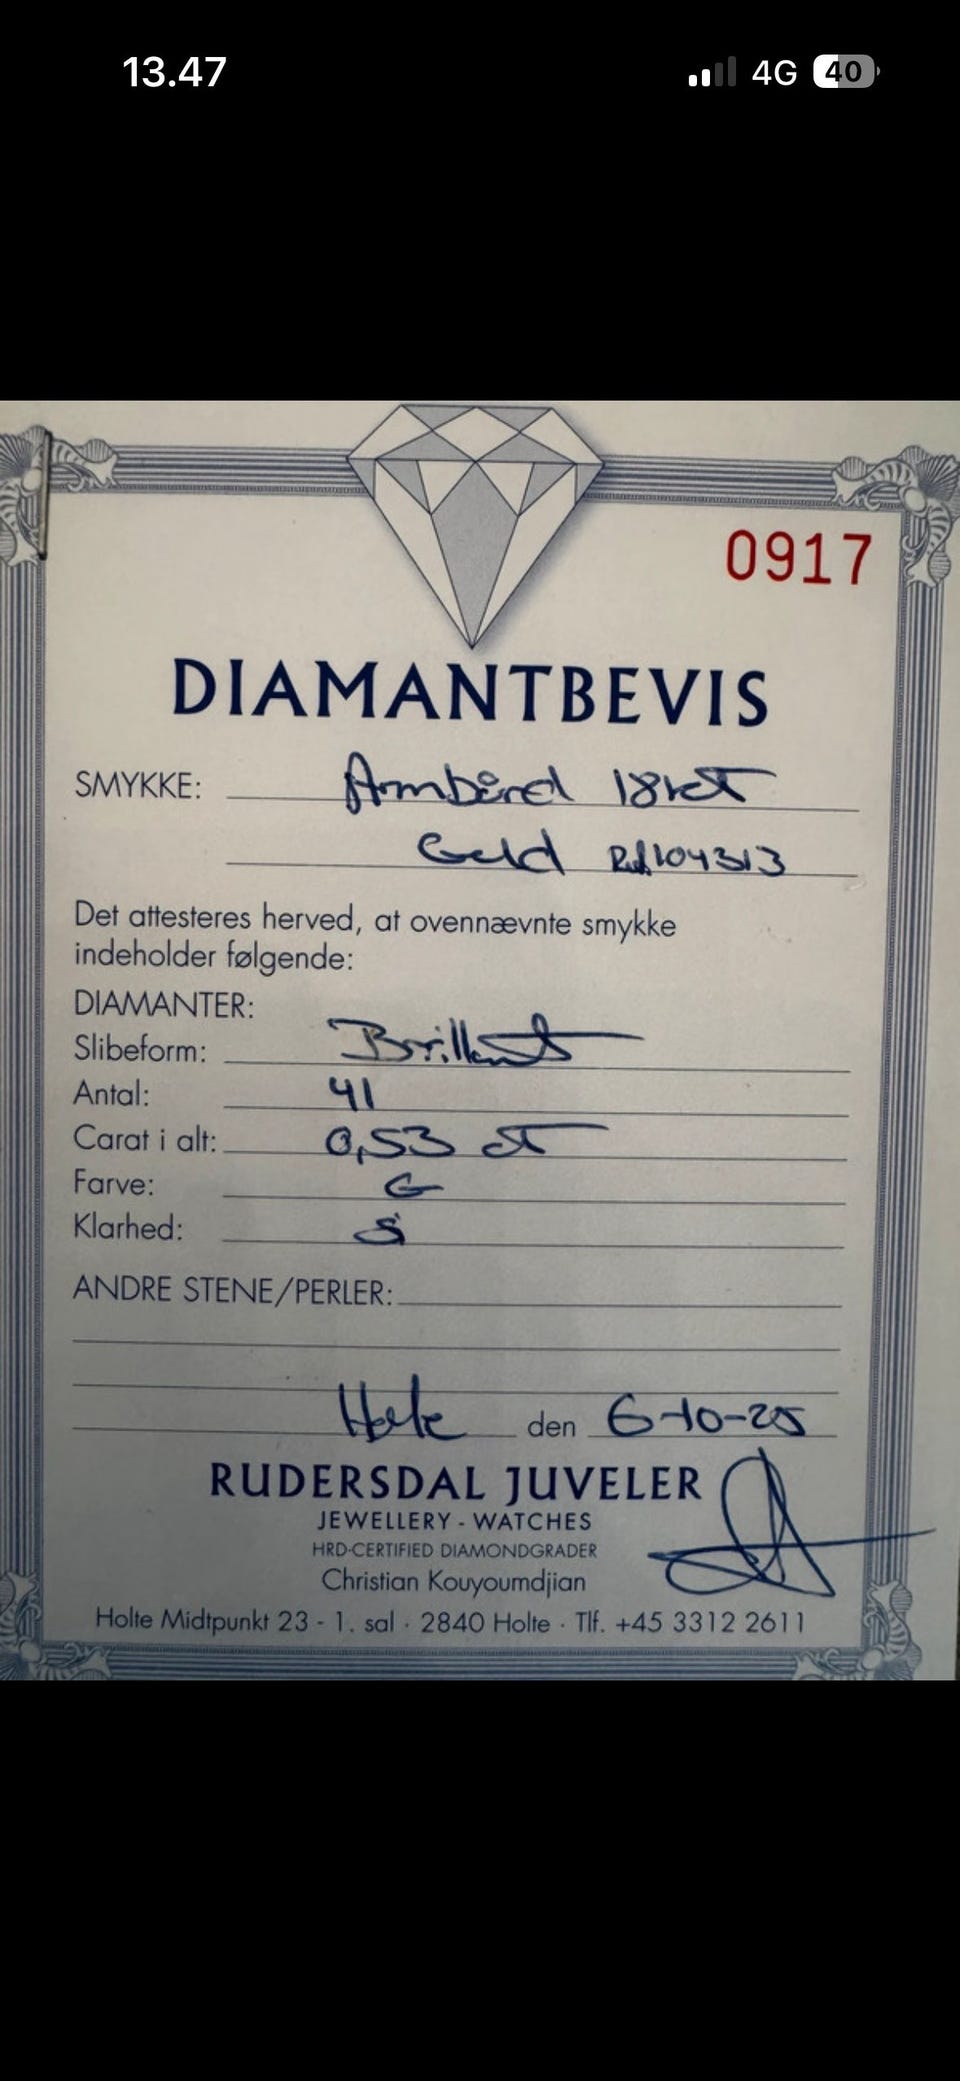 13.47 4G 40
0917
DIAMANTBEVIS
SMYKKE: Armbånd 18kt
Guld Ref104313
Det attesteres herved, at ovennævnte smykke
indeholder følgende:
DIAMANTER:
Slibeform: Brillant
Antal: 41
Carat i alt: 0,53 ct
Farve: G
Klarhed: Si
ANDRE STENE/PERLER:
Holte den 6-10-25
RUDERSDAL JUVELER
JEWELLERY - WATCHES
HRD-CERTIFIED DIAMONDGRADER
Christian Kouyoumdjian
Holte Midtpunkt 23 - 1. sal · 2840 Holte · Tlf. +45 3312 2611